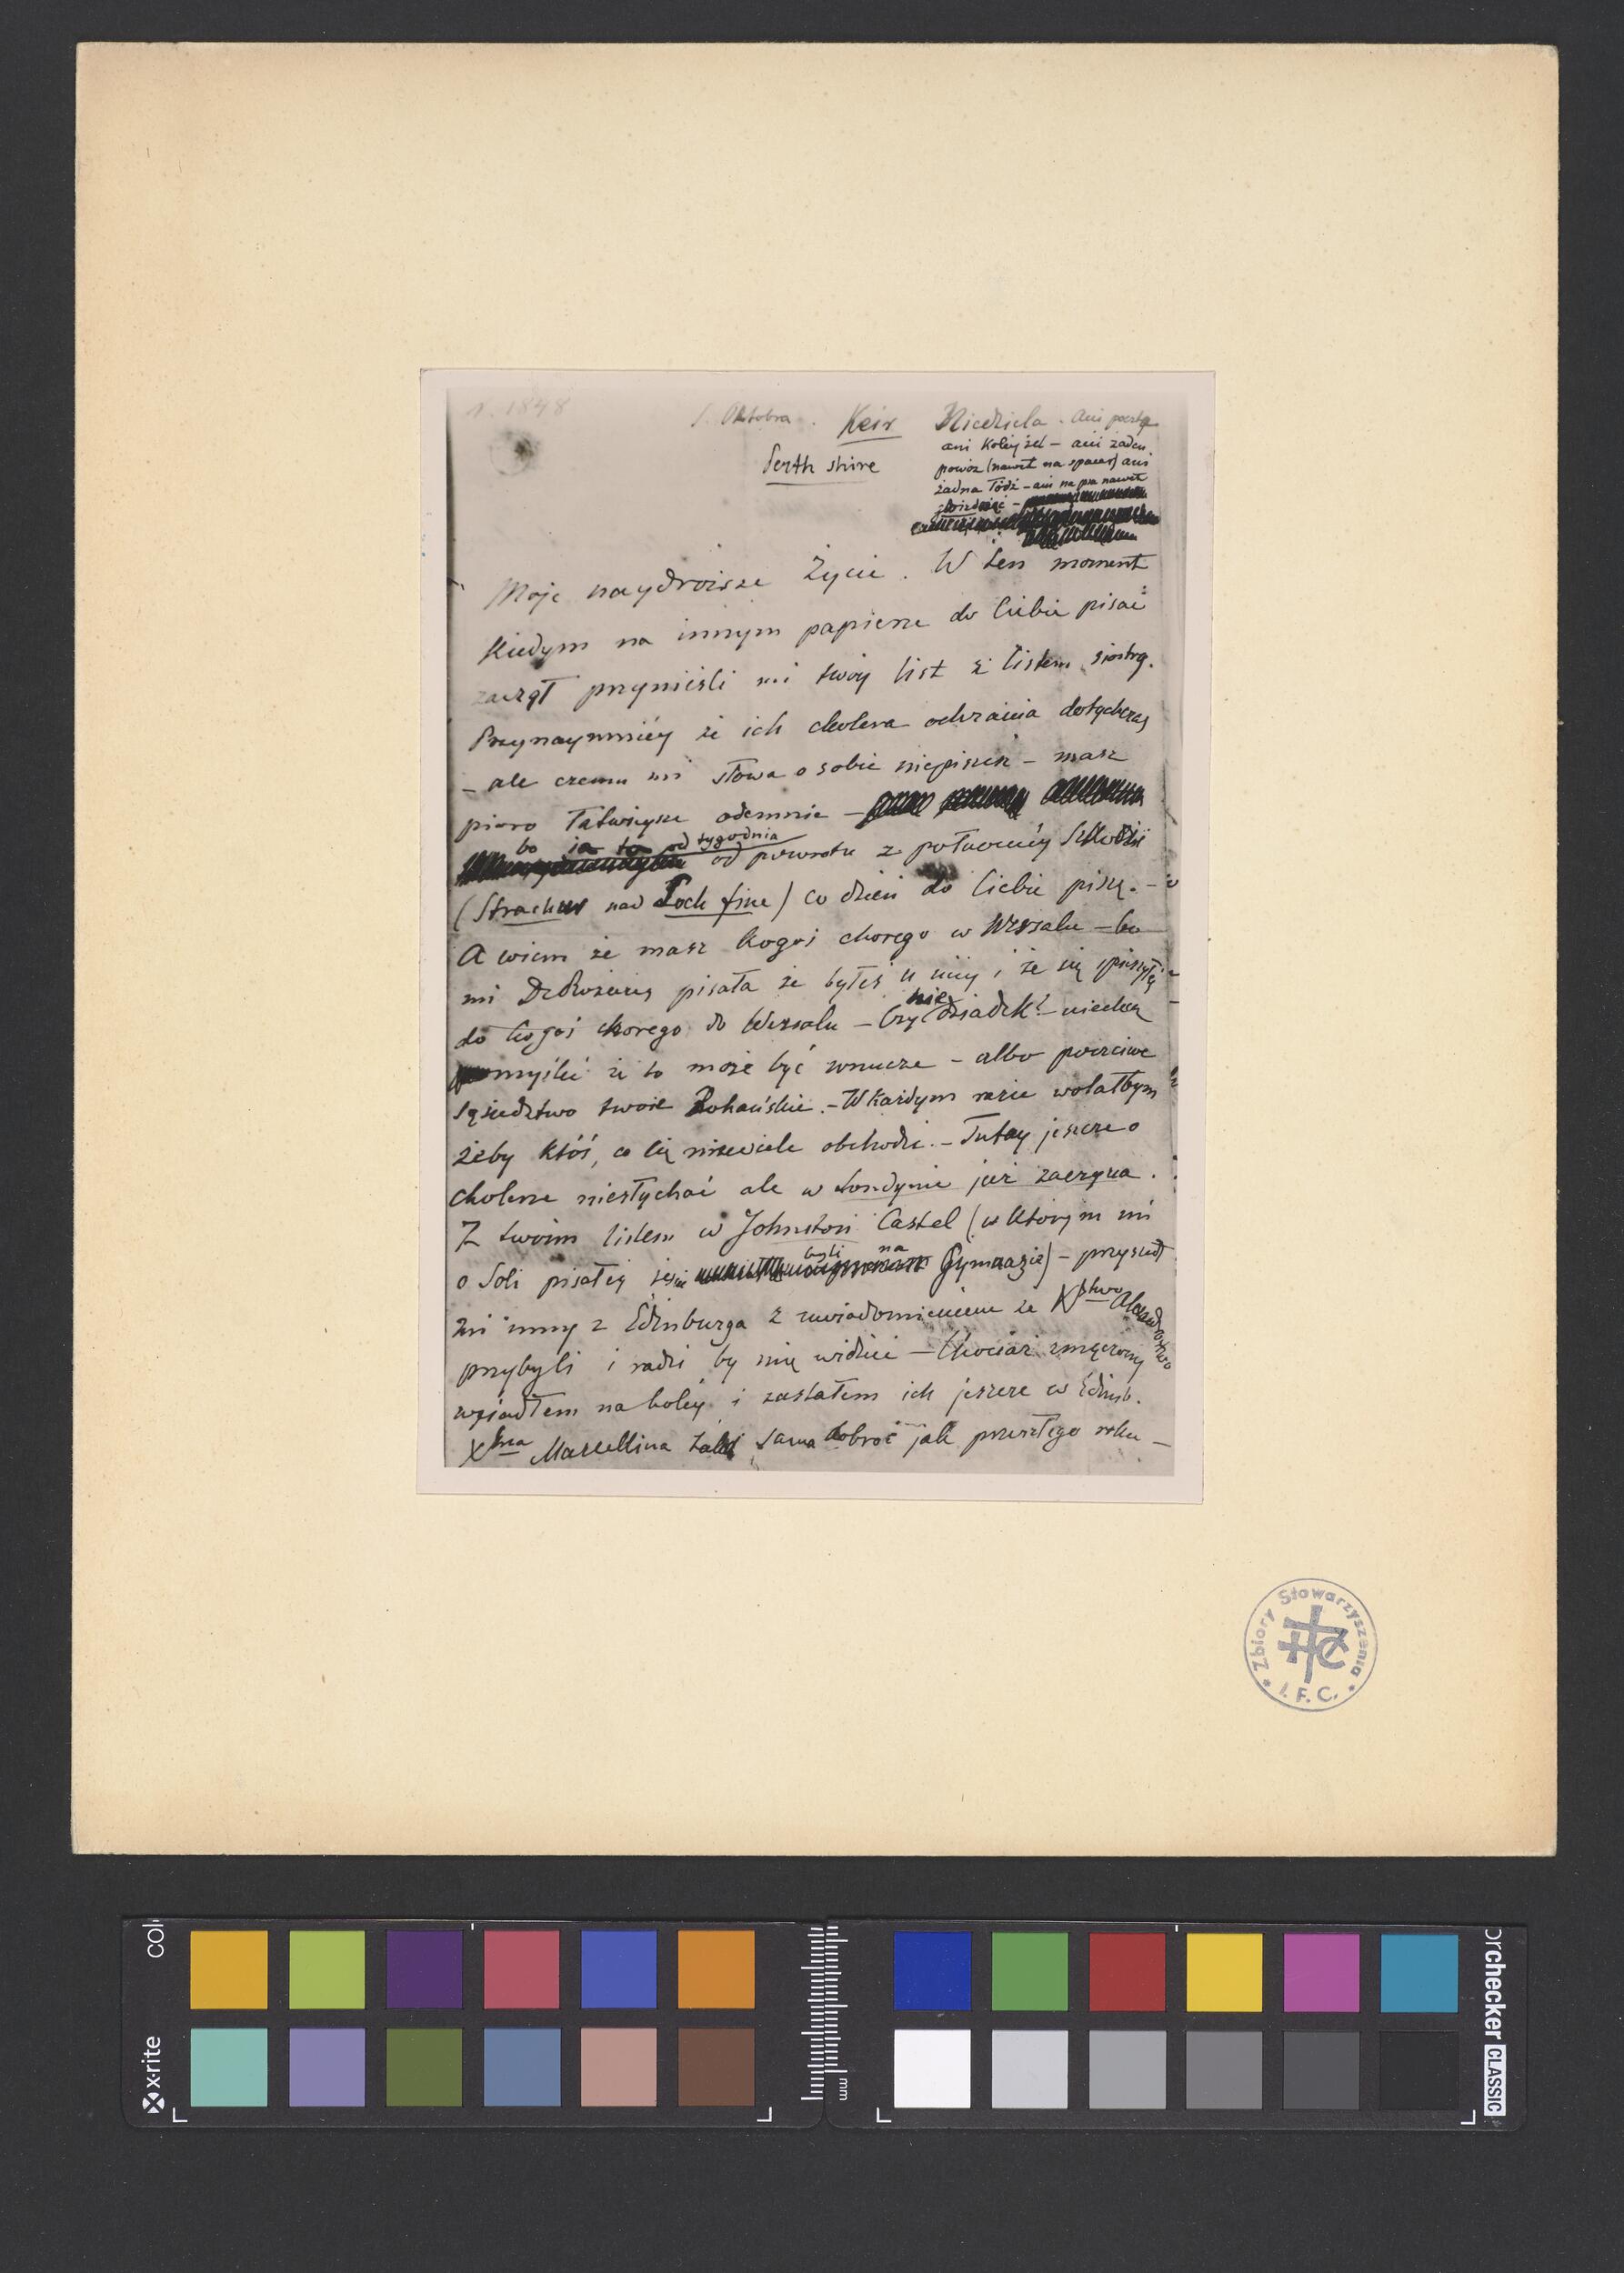 r. 1848
1. Oktobra. Keir Niedziela. Ani poczty
Perth shire
ani Koleyżel – ani żaden
powóz (nawet na spacer) ani
żadna łódź – ani na psa nawet
gwizdnąć –
Moje naydroższe Życie. W ten moment
Kiedym na innym papierze do Ciebie pisać
zaczął przynieśli mi twóy list z listem siostry.
Przynaymniéy że ich cholera ochrania dotychczas
– ale czemu mi słowa o sobie niepiszesz – masz
pioro łatwieysze odemnie –
bo ja to od tygodnia
od powrotu z połnocnéy Szkodzii
(Strachur nad Loch fine) co dzień do Ciebie piszę. –
A wiem że masz kogoś chorego w Wersalu – bo
mi DeRozieres pisała że byłeś u niéy i że się spieszyłeś
do kogoś chorego do Wersalu – Czy nie dziadek? – niechcę
myśleć że to może być wnucze – albo poczciwe
sąsiedztwo twoie Rohańskie. – W każdym razie wolałbym
żeby któś, co Cię niewiele obchodzi. – Tutay jeszcze o
cholerze niesłychać ale w Londynie już zaczyna.
Z twoim listem w Johnston Castel (w którym mi
o Soli pisałeś żeście byli na Gymnazie) – przyszedł
mi inny z Edinburga z zawiadomieniem że Xstwo Alexandrostwo
przybyli i radzi by mię widzieć – Chociaż zmęczony
wsiadłem na koléy i zastałem ich jeszcze w Edinb.
Xżna Marcellina taka sama dobroć jak przeszłego roku –
Zbiory Stowarzyszenia
I.F.C.
x-rite
mm
colorchecker CLASSIC